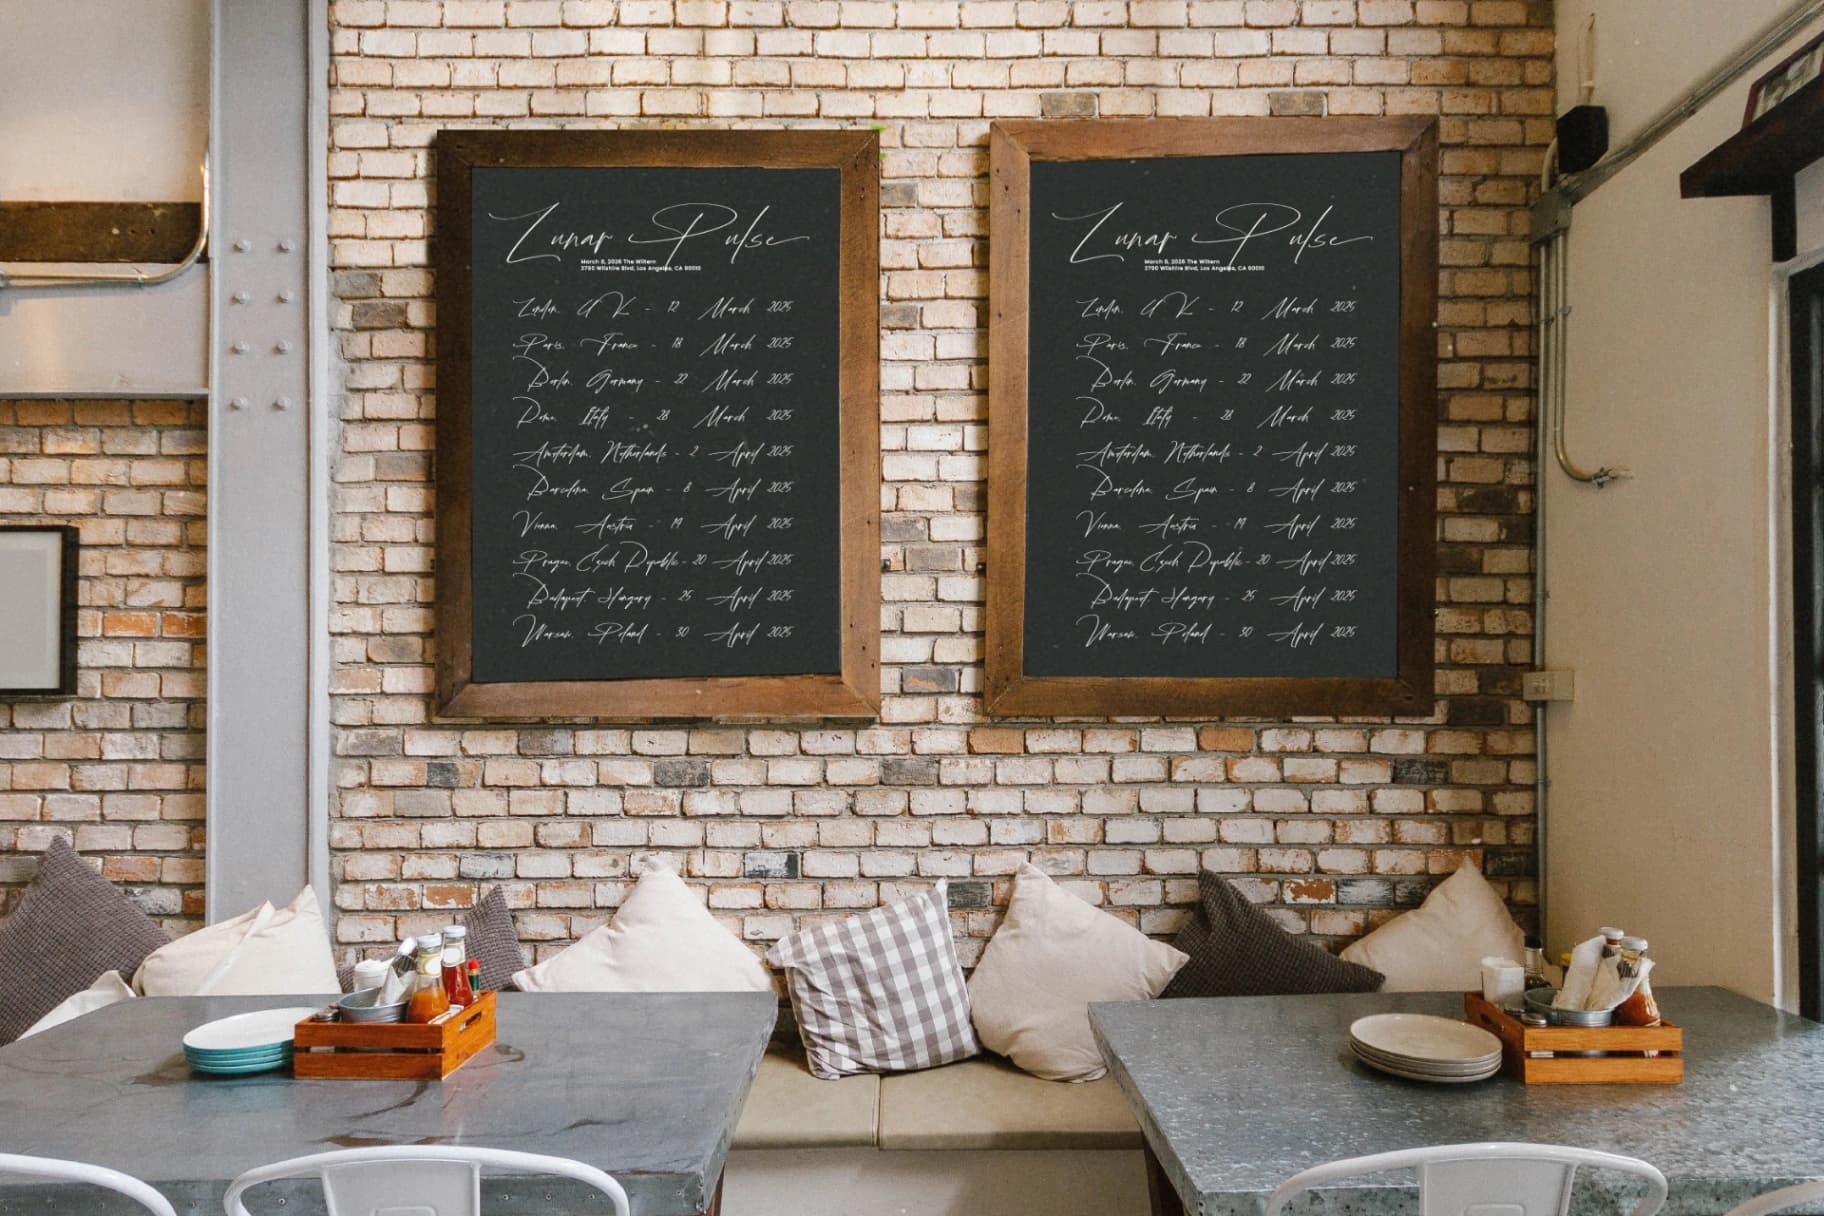 Lunar Pulse
March 8, 2026 The Wiltern
3790 Wilshire Blvd, Los Angeles, CA 90010
London, UK - 12 March 2025
Paris, France - 18 March 2025
Berlin, Germany - 22 March 2025
Rome, Italy - 28 March 2025
Amsterdam, Netherlands - 2 April 2025
Barcelona, Spain - 8 April 2025
Vienna, Austria - 14 April 2025
Prague, Czech Republic - 20 April 2025
Budapest, Hungary - 25 April 2025
Warsaw, Poland - 30 April 2025
Lunar Pulse
March 8, 2026 The Wiltern
3790 Wilshire Blvd, Los Angeles, CA 90010
London, UK - 12 March 2025
Paris, France - 18 March 2025
Berlin, Germany - 22 March 2025
Rome, Italy - 28 March 2025
Amsterdam, Netherlands - 2 April 2025
Barcelona, Spain - 8 April 2025
Vienna, Austria - 14 April 2025
Prague, Czech Republic - 20 April 2025
Budapest, Hungary - 25 April 2025
Warsaw, Poland - 30 April 2025